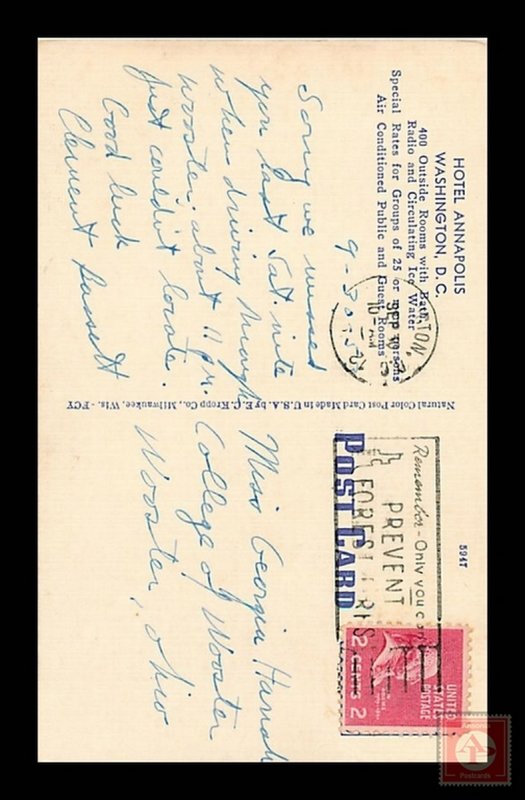 HOTEL ANNAPOLIS
WASHINGTON, D. C.
400 Outside Rooms with Bath,
Radio and Circulating Ice Water
Special Rates for Groups of 25 or more persons
Air Conditioned Public and Guest Rooms
TON,
SEP 30
10 AM
9-30-52
Sorry we missed
you last Sat. nite
when driving through
Wooster about 11 P.M.
Just couldn't locate.
Good luck
Clement Bassett
Natural Color Post Card Made in U.S.A. by E. C. Kropp Co., Milwaukee, Wis. - FCY
POST CARD
5947
Remember - Only you can
PREVENT
FOREST FIRES
UNITED
STATES
POSTAGE
2 CENTS 2
Miss Georgia
College of Wooster
Wooster, Ohio
Postcards